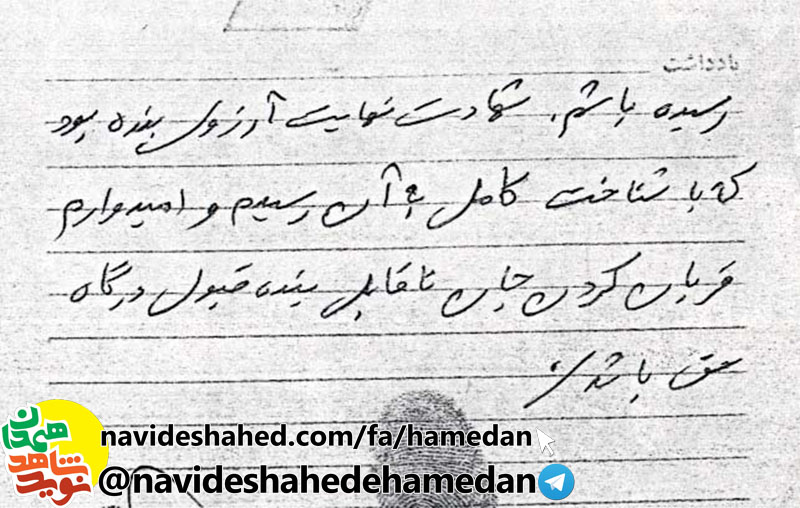 یادداشت
رسیده باشم. شهادت نهایت آرزوی بنده بود
که با شناخت کامل به آن رسیدم و امیدوارم
قربان کردن جان ناقابل بنده قبول درگاه
حق باشد.
navideshahed.com/fa/hamedan
@navideshahedehamedan
نوید شاهد همدان